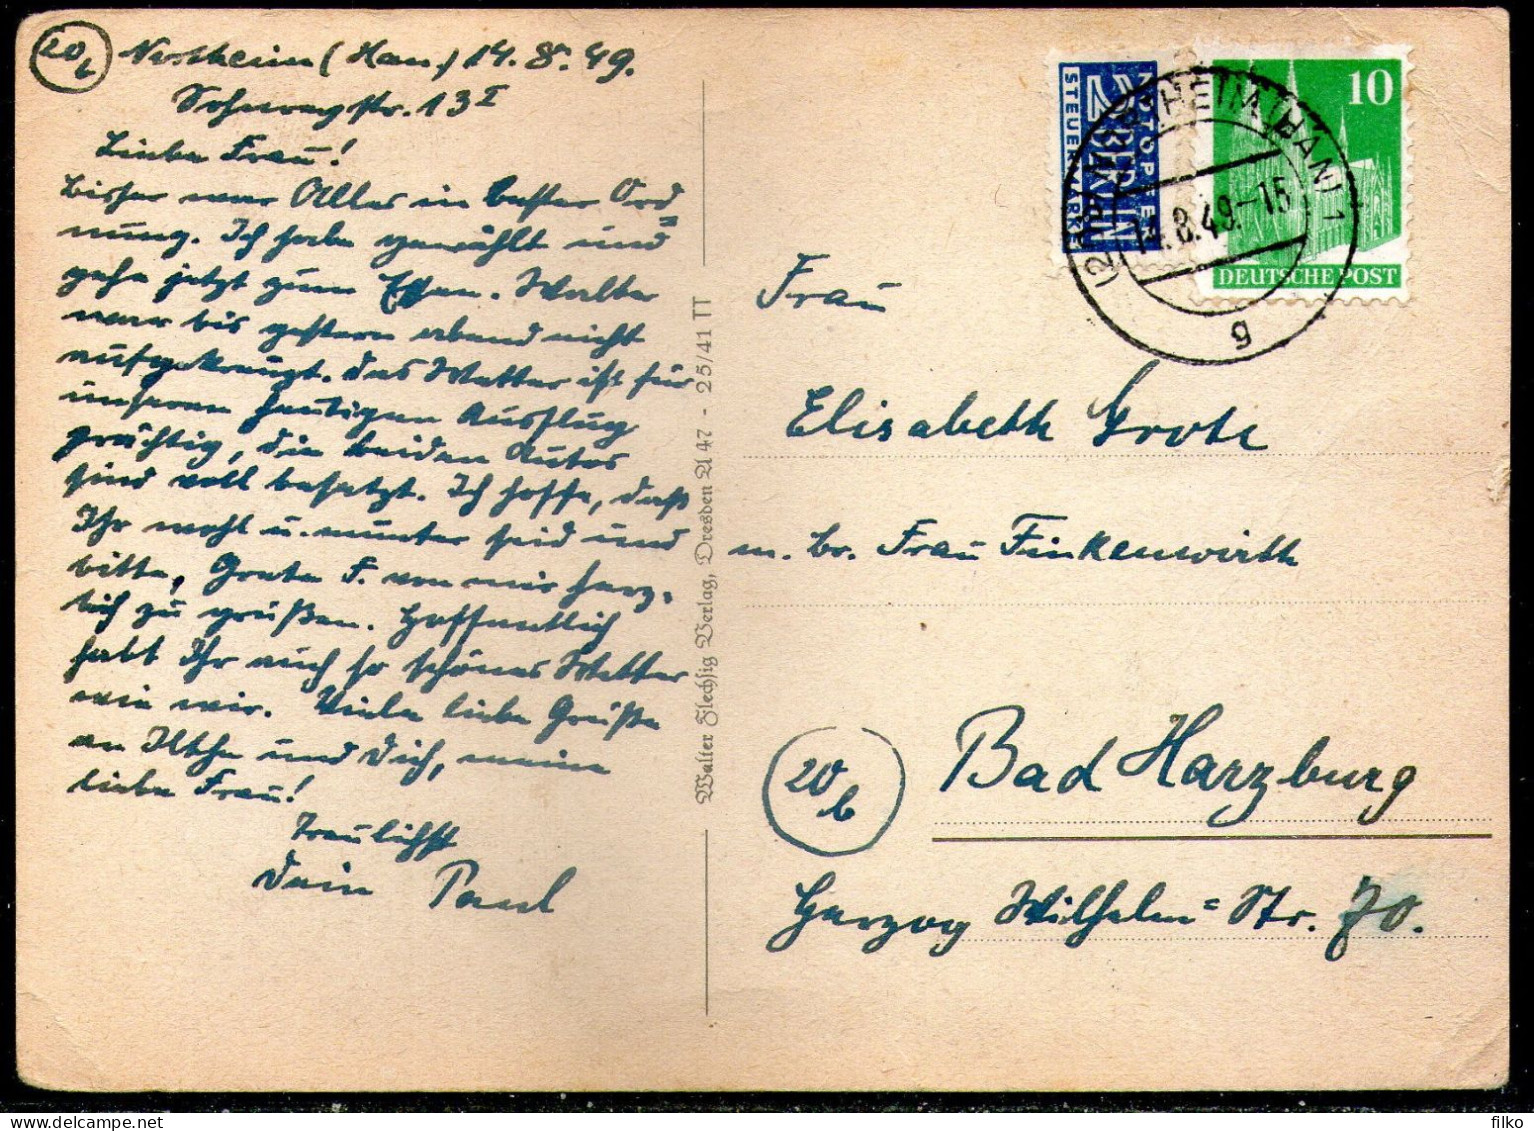 20b Northeim (Han.) 14. 8. 49.
str. 13 I
Liebe Frau!
Bisher war Alles in bester Ord=
nung. Ich habe gewählt und
gehe jetzt zum Essen. Walter
war bis gestern abend nicht
aufgekreuzt. Das Wetter ist für
unseren heutigen Ausflug
prächtig, die beiden Autos
sind voll besetzt. Ich hoffe, daß
Ihr wohl u. munter seid und
bitte, Grete F. von mir herz-
lich zu grüßen. Hoffentlich
habt Ihr auch so schönes Wetter
wie wir. Viele liebe Grüße
an Ilthe und Dich, meine
liebe Frau!
Traulichst
Dein Paul
Walter Flechsig Verlag, Dresden A 47 - 25/41 TT
NOTOPFER
2 BERLIN
STEUERMARKE
10
DEUTSCHE POST
(20b) NORTHEIM (HAN) 1
14.8.49.-15
g
Frau
Elisabeth Grote
m. Br. Frau Finkenwirth
20b
Bad Harzburg
Herzog Wilhelm=Str. 70.
filko